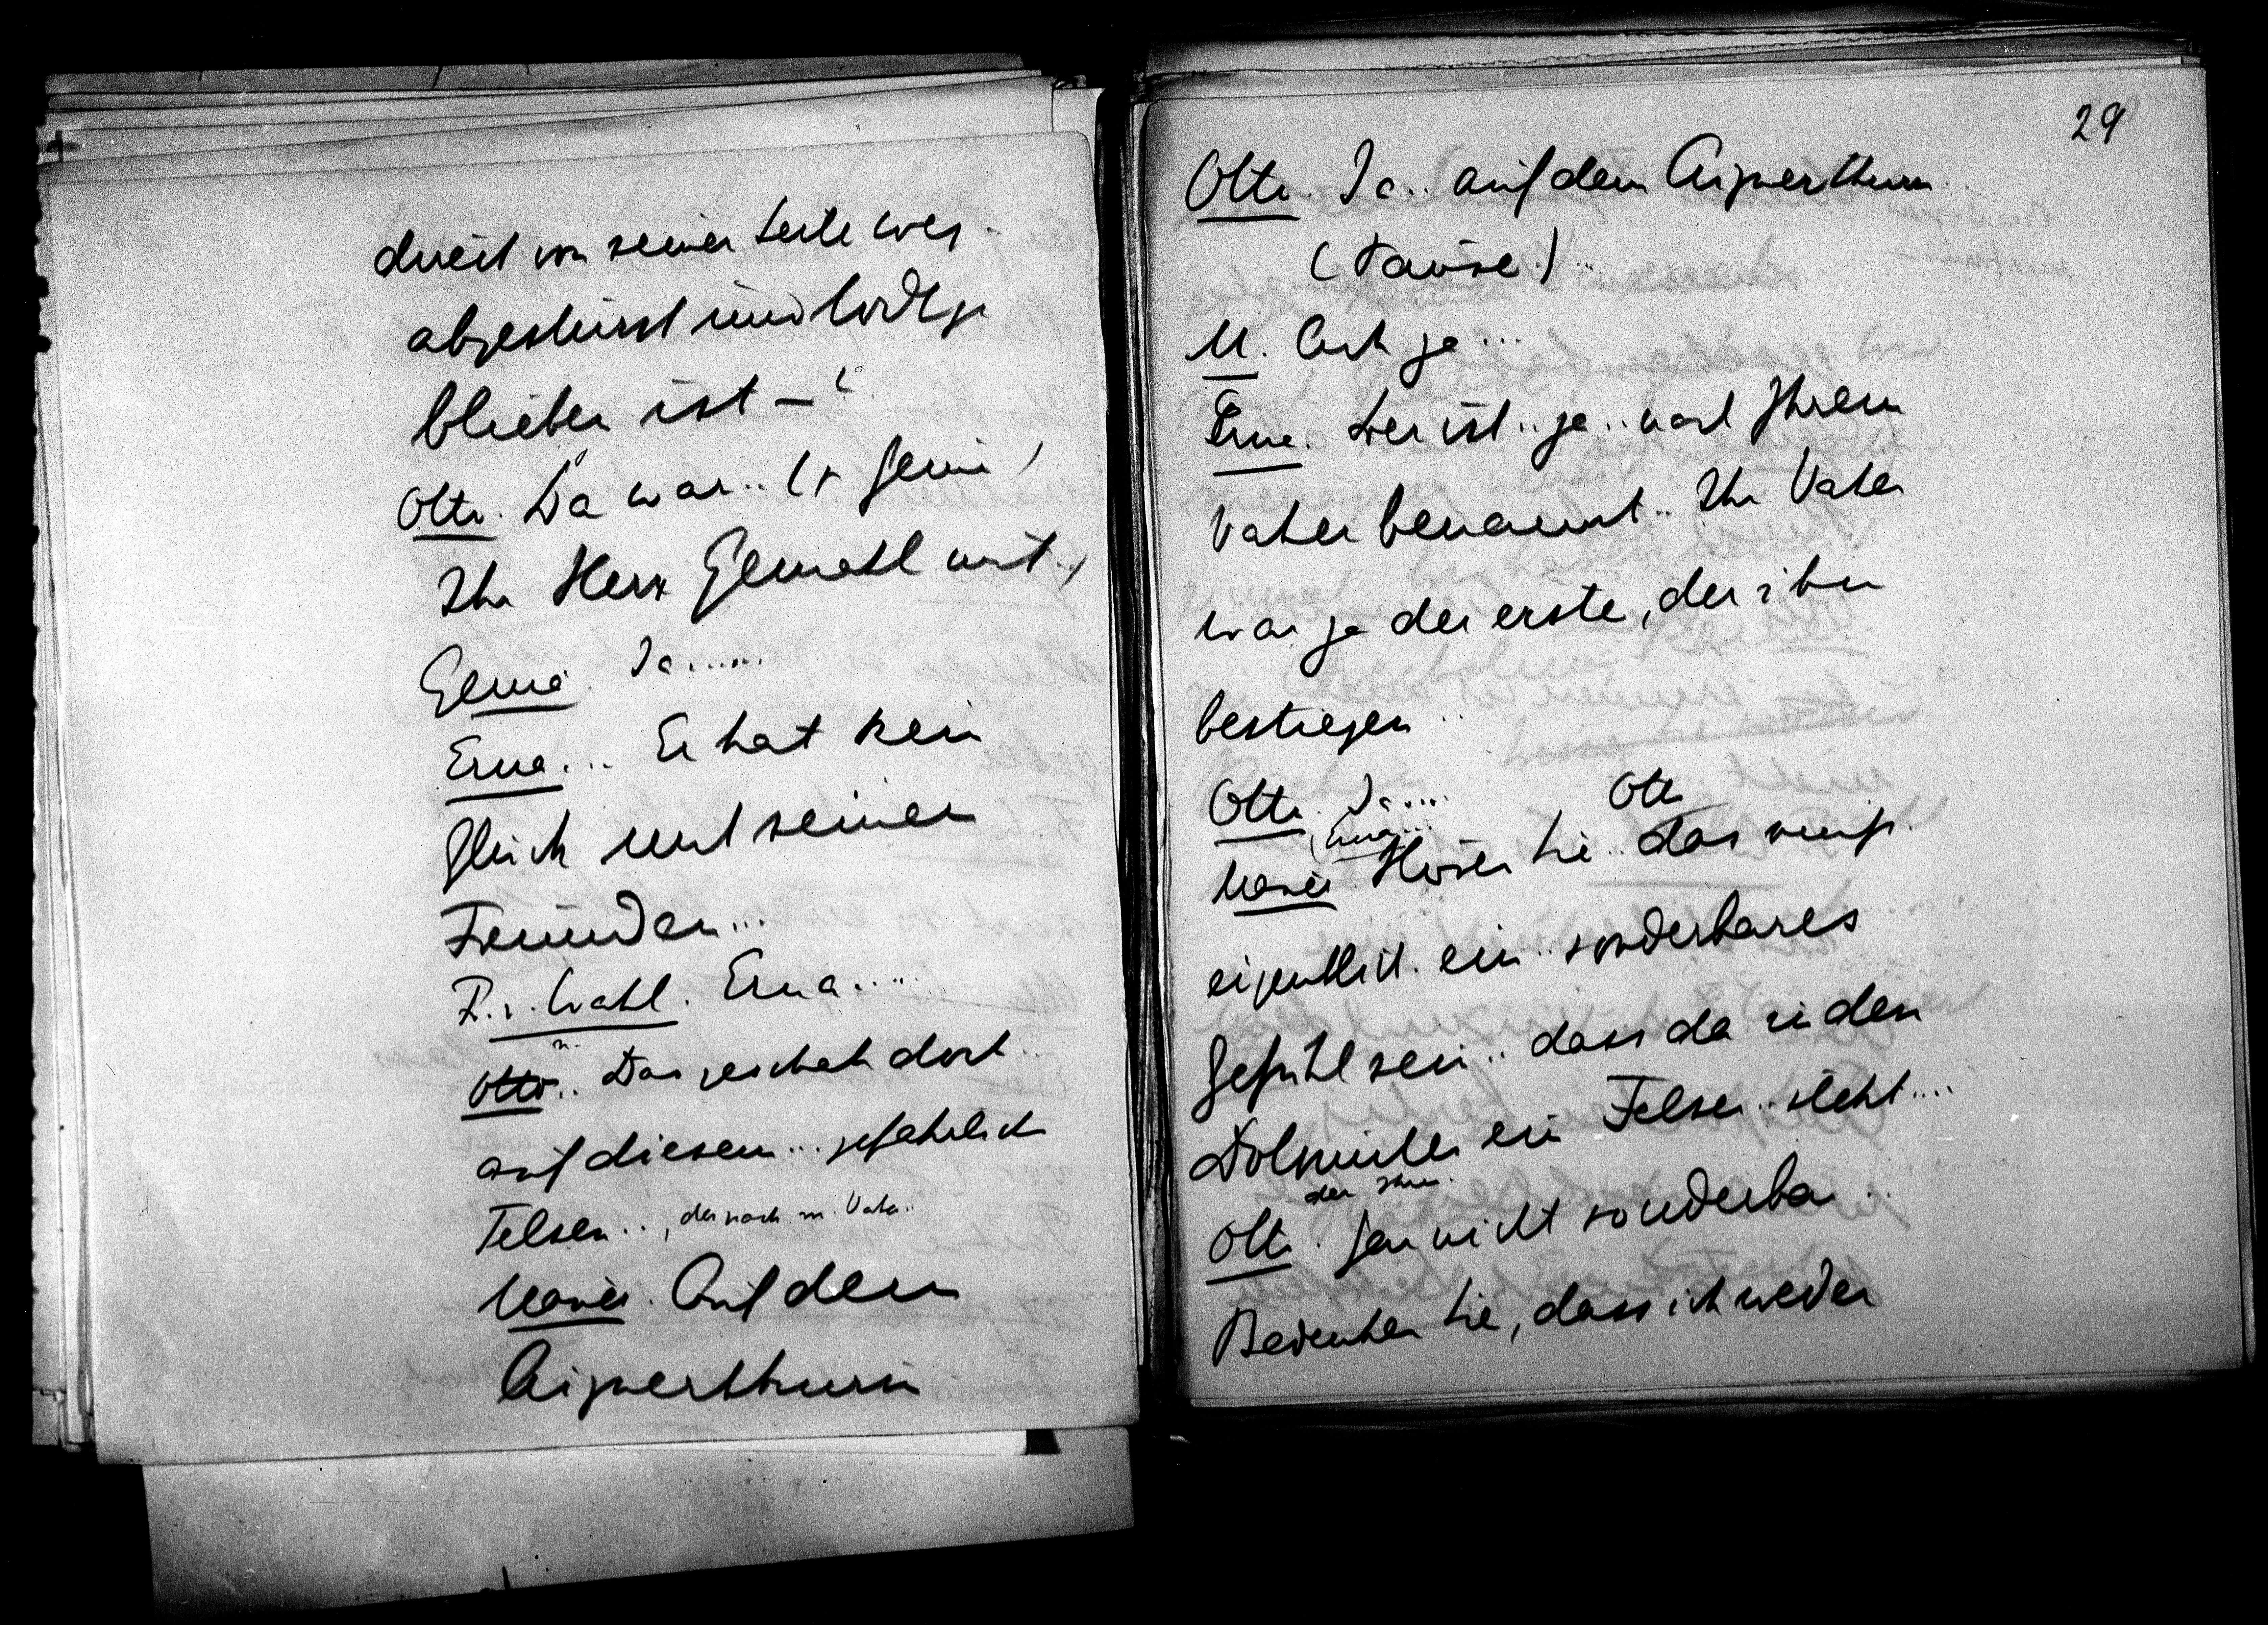 direct von seiner Seite weg
abgestürzt und todt ge
blieben ist –?
Otto. Da war .. (z Genia)
Ihr Herr Gemahl mit.)
Genia. Ja.....
Erna ... Er hat kein
Glück mit seinen
Freunden...
F. v. Wahl. Erna.....
Otto.. Das geschah dort..
auf diesem ... gefährlich
Felsen.., der nach m. Vater..
Mauer. Auf dem
Aignerthurm
29
Otto. Ja.. auf dem Aignerthurm..
(Pause)..
M. Ach ja...
Erna. Der ist .. ja .. nach Ihrem
Vater benannt.. Ihr Vater
war ja der erste, der ihn
bestiegen ..
Otto. Ja....
Erna... Otto
Mauer. Hören Sie .. das muss
eigentlich ein .. sonderbares
Gefühl sein .. dass da in den
Dolomiten ein Felsen .. steht....
der Ihren.
Otto. Gar nicht sonderbar..
Bedenken Sie, dass ich weder